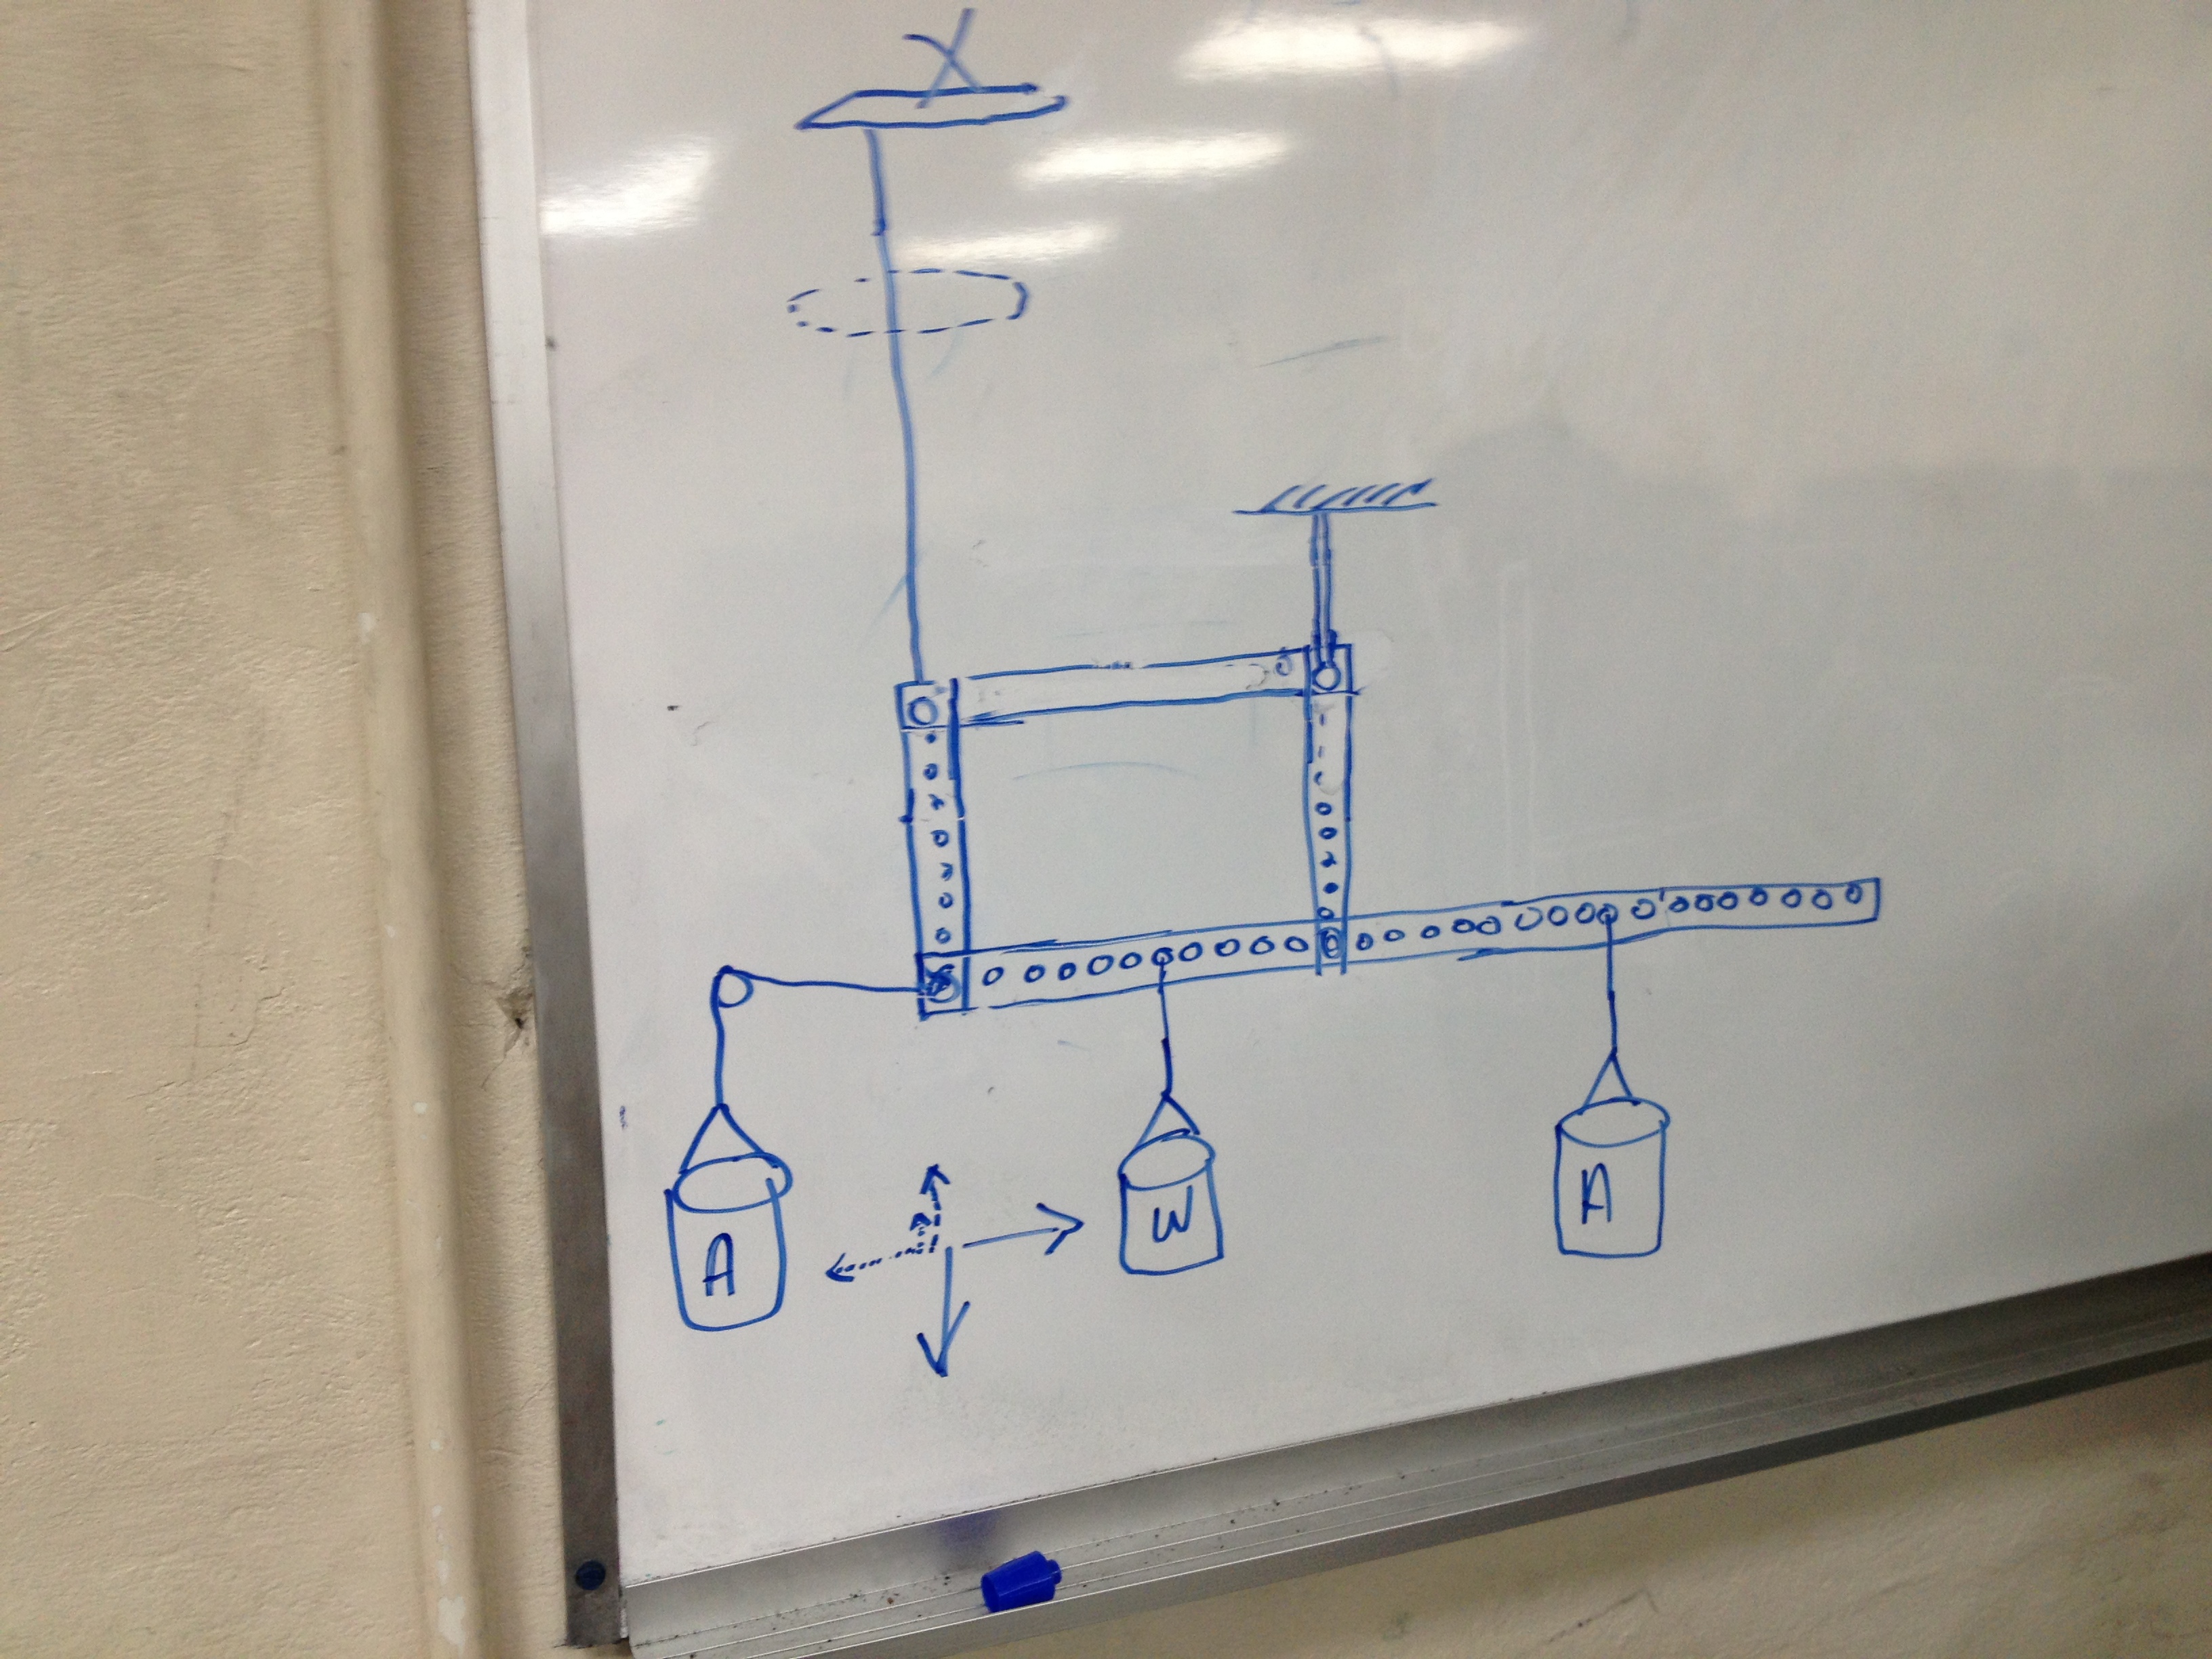 X
A
W
A